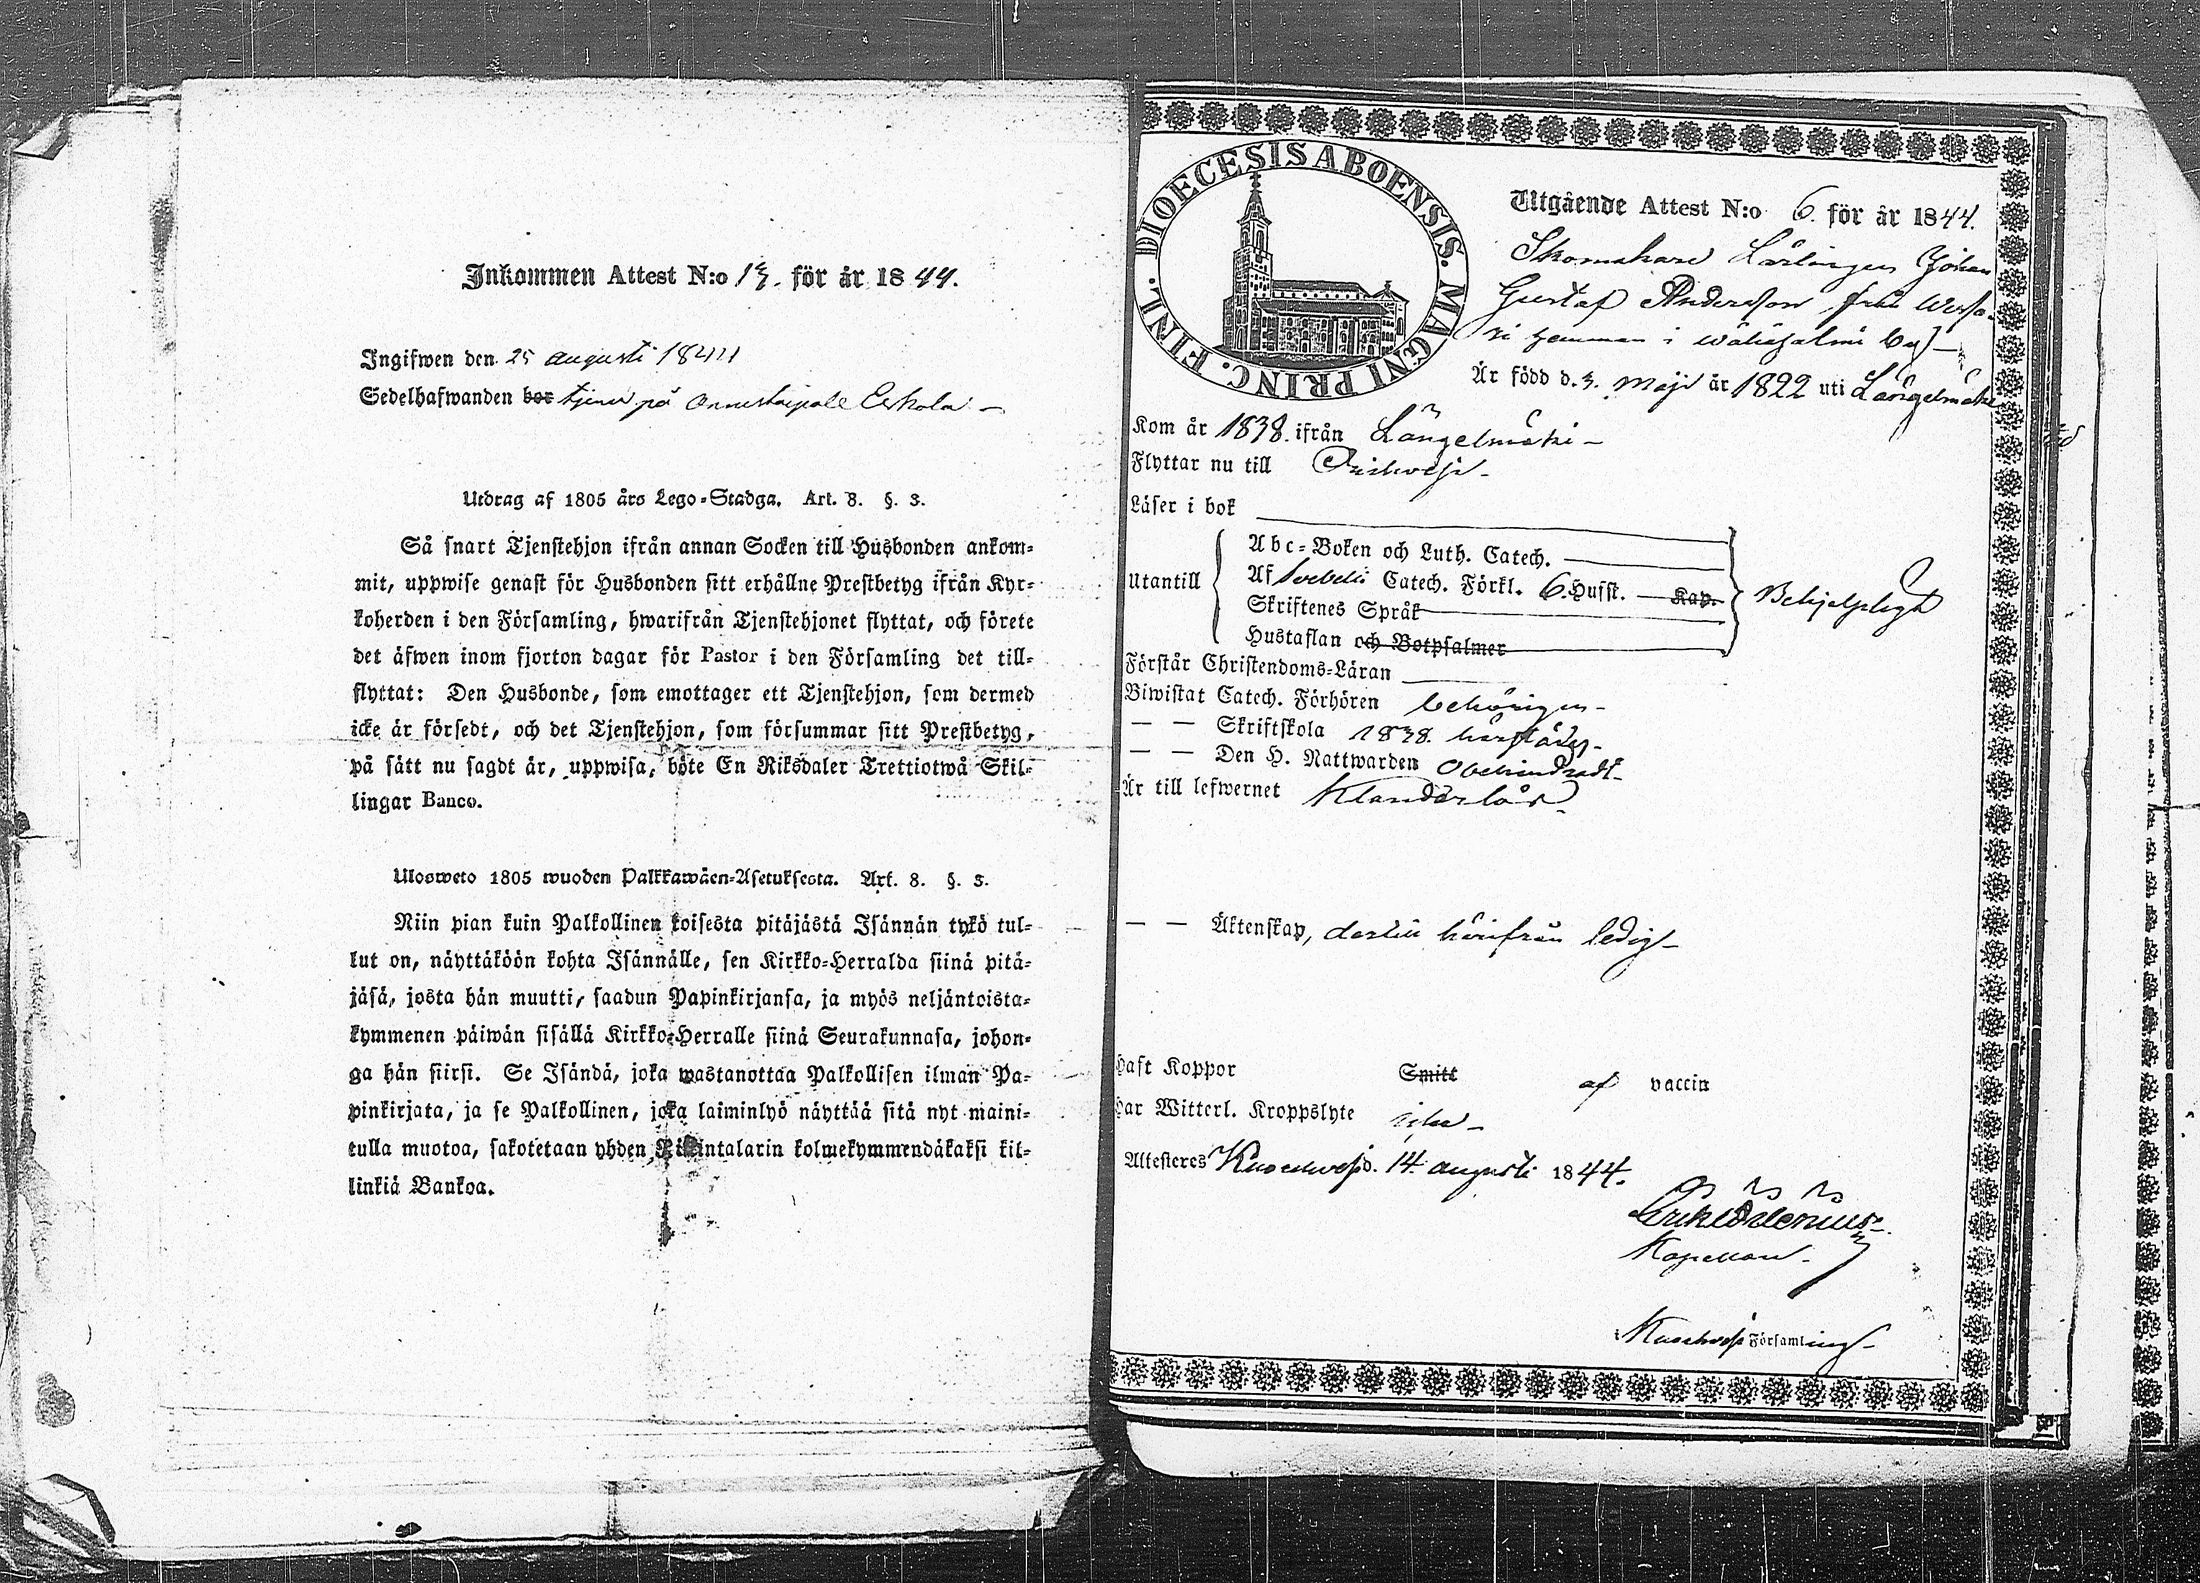 Inkommen Attest N:o 13. för år 1844.
Ingifwen den 25 augusti 1844
Sedelhafwanden bor tjenar på Onnistaipale Eskola –
Utdrag af 1805 års Lego-Stadga. Art. 8. §. 3.
Så snart Tjenstehjon ifrån annan Socken till Husbonden ankom-
mit, uppwise genast för Husbonden sitt erhållne Prestbetyg ifrån Kyr-
koherden i den Församling, hwarifrån Tjenstehjonet flyttat, och förete
det äfwen inom fjorton dagar för Pastor i den Församling det till-
flyttat: Den Husbonde, som emottager ett Tjenstehjon, som dermed
icke är försedt, och det Tjenstehjon, som försummar sitt Prestbetyg,
på sätt nu sagdt är, uppwisa, böte En Riksdaler Trettiotwå Skil-
lingar Banco.
Ulosweto 1805 wuoden Palkkawäen-Asetuksesta. Art. 8. §. 3.
Niin pian kuin Palkollinen toisesta pitäjästä Isännän tykö tul-
lut on, näyttäköön kohta Isännälle, sen Kirkko-Herralda siinä pitä-
jäsä, josta hän muutti, saadun Papinkirjansa, ja myös neljäntoista-
kymmenen päiwän sisällä Kirkko-Herralle siinä Seurakunnasa, johon-
ga hän siirsi. Se Isändä, joka wastanottaa Palkollisen ilman Pa-
pinkirjata, ja se Palkollinen, joka laiminlyö näyttää sitä nyt maini-
tulla muotoa, sakotetaan yhden Rikintalarin kolmekymmendäkaksi kil-
linkiä Bankoa.
DIOECESIS ABOENSIS. MAGNI PRINC. FINL.
Utgående Attest N:o 6. för år 1844.
Skomakare Lärlingen Johan
Gustaf Andersson från
hemman i by –
Är född d. 3. Maji år 1822 uti Längelmäki
Kom år 1838. ifrån Längelmäki –
Flyttar nu till Orihvesi –
Läser i bok
Abc-Boken och Luth. Catech.
Utantill Af Svebelii Catech. Förkl. 6 Hufst. – Kap. Behjelpligt
Skriftenes Språk
Hustaflan och Botpsalmer
Förstår Christendoms-Läran
Biwistat Catech. Förhören behörigen –
— — Skriftskola 1838. härstädes –
— — Den H. Nattwarden Obehindradt –
Är till lefwernet Klanderlös –
— — Äktenskap, dertill härifrån ledig –
Haft Koppor Smitt af vaccin
Har Witterl. Kroppslyte icke –
Attesteras Kuorehvesi d. 14. augusti 1844.
Kapellan –
Kuorehvesi Församling –